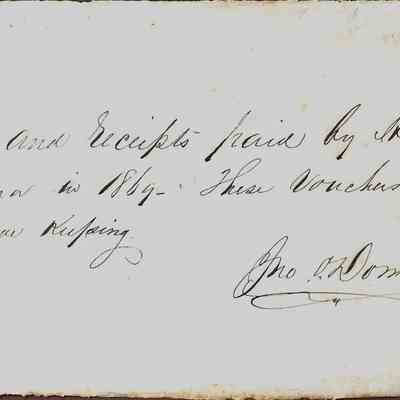 and Receipts paid by
in 1869 - These Vouchers
Keeping
Jno. O. Dom